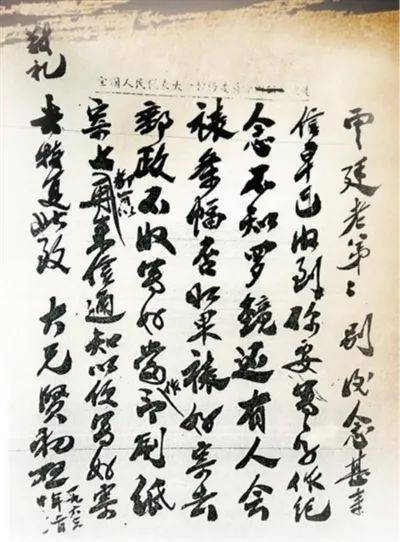 全国人民代表大会常务委员会
雲廷老弟：别后念甚来
信早已收到称要写个作纪
念不知罗镜还有人会
裱条幅否如果裱好寄去
郵政不收写好当作印刷纸
寄上都可以再来信通知以便写好寄
去特复此致 大兄贤初
一九六三年
敬礼